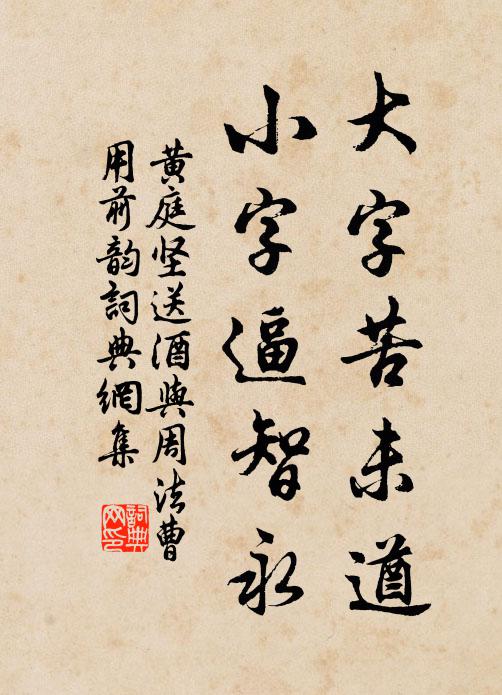 大字苦未遒
小字逼智永
黄庭坚送酒與周法曹
用前韵詞典網集
詞典網印